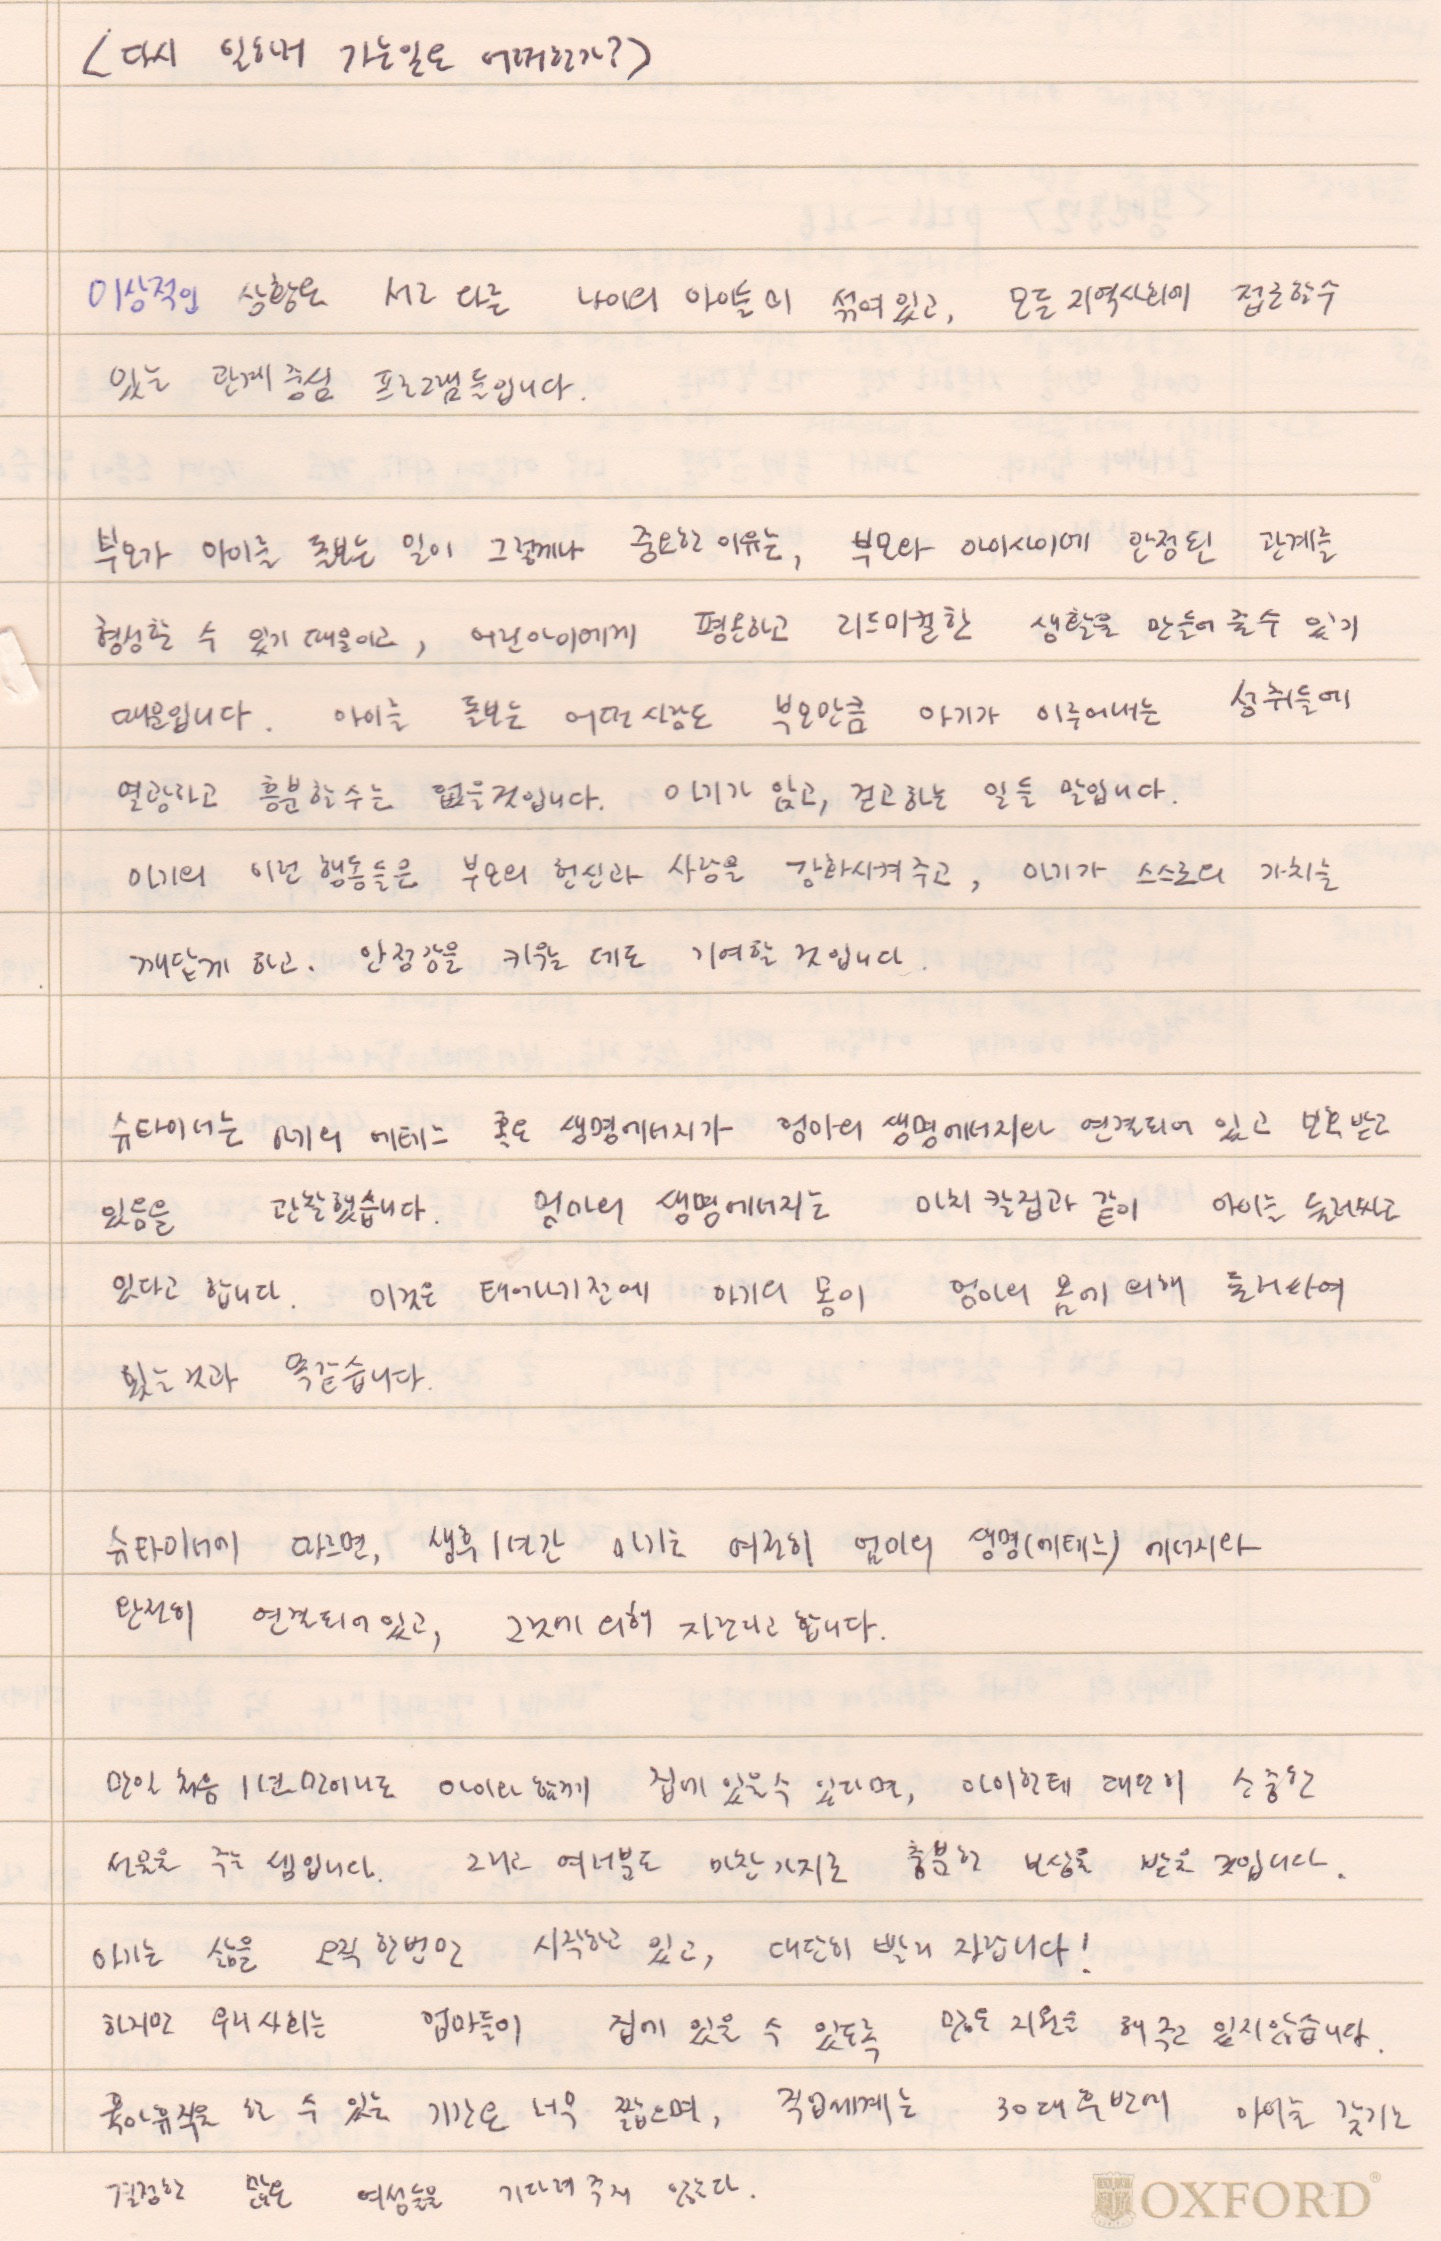 <다시 일하러 가는일은 어떠한가?>
이상적인 상황은 서로 다른 나이의 아이들이 섞여있고, 모든 지역사회에 접근할수
있는 관계중심 프로그램들입니다.
부모가 아이를 돌보는 일이 그렇게나 중요한 이유는, 부모와 아이사이에 안정된 관계를
형성할 수 있기 때문이고, 어린아이에게 평온하고 리드미컬한 생활을 만들어 줄수 있기
때문입니다. 아이를 돌보는 어떤 사람도 부모만큼 아기가 이루어내는 성취들에
열광하고 흥분할수는 없을것입니다. 아기가 앉고, 걷고하는 일들 말입니다.
아기의 이런 행동들은 부모의 헌신과 사랑을 강화시켜주고, 아기가 스스로의 가치를
깨닫게 하고. 안정감을 키우는 데도 기여할 것입니다.
슈타이너는 아기의 에테르 혹은 생명에너지가 엄마의 생명에너지와 연결되어 있고 보호받고
있음을 관찰했습니다. 엄마의 생명에너지는 마치 칼집과 같이 아이를 둘러싸고
있다고 합니다. 이것은 태어나기전에 아기의 몸이 엄마의 몸에 의해 둘러싸여
있는것과 똑같습니다.
슈타이너에 따르면, 생후 1년간 아기는 여전히 엄마의 생명(에테르) 에너지와
완전히 연결되어있고, 그것에 의해 자란다고 합니다.
만일 처음 1년만이라도 아이와 함께 집에 있을수 있다면, 아이한테 대단히 소중한
선물을 주는 셈입니다. 그리고 여러분도 마찬가지로 충분한 보상을 받을 것입니다.
아기는 삶을 오직 한번만 시작하고 있고, 대단히 빨리 자랍니다!
하지만 우리사회는 엄마들이 집에 있을 수 있도록 많은 지원을 해주고 있지않습니다.
육아휴직을 할 수 있는 기간은 너무 짧으며, 직업세계는 30대후반에 아이를 갖기로
결정한 많은 여성들을 기다려주지 않는다.
OXFORD®